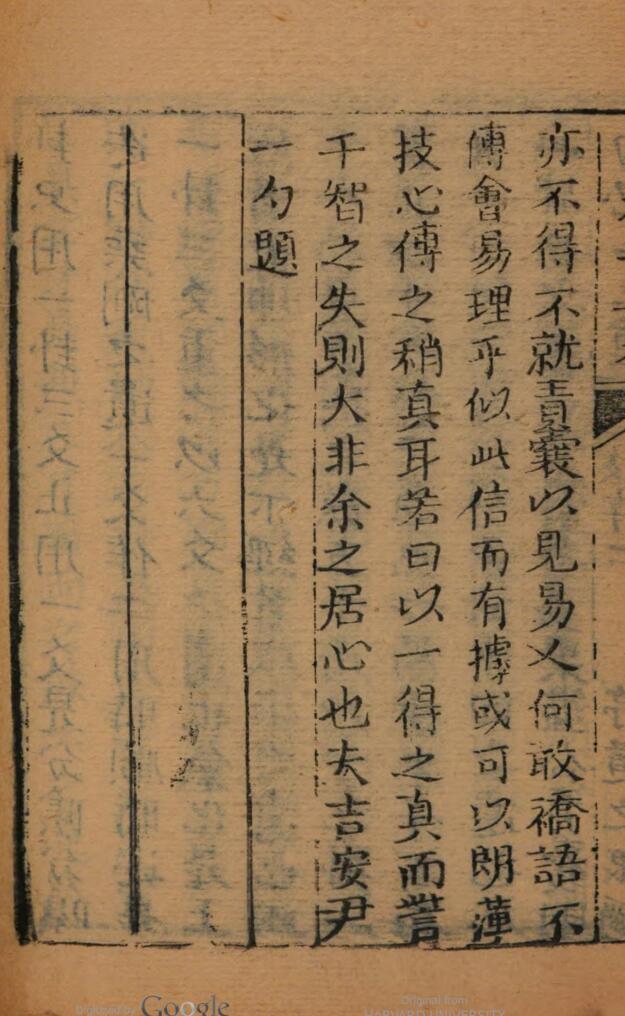 亦不得不就青囊以見易乂何敢襘語不
傅會易理乎似此信而有據或可以朗蓮
技心傳之稍真耳若曰以一得之真而訾
千智之失則大非余之居心也夫吉安尹
一勺題
Digitized by Google
Original from
HARVARD UNIVERSITY